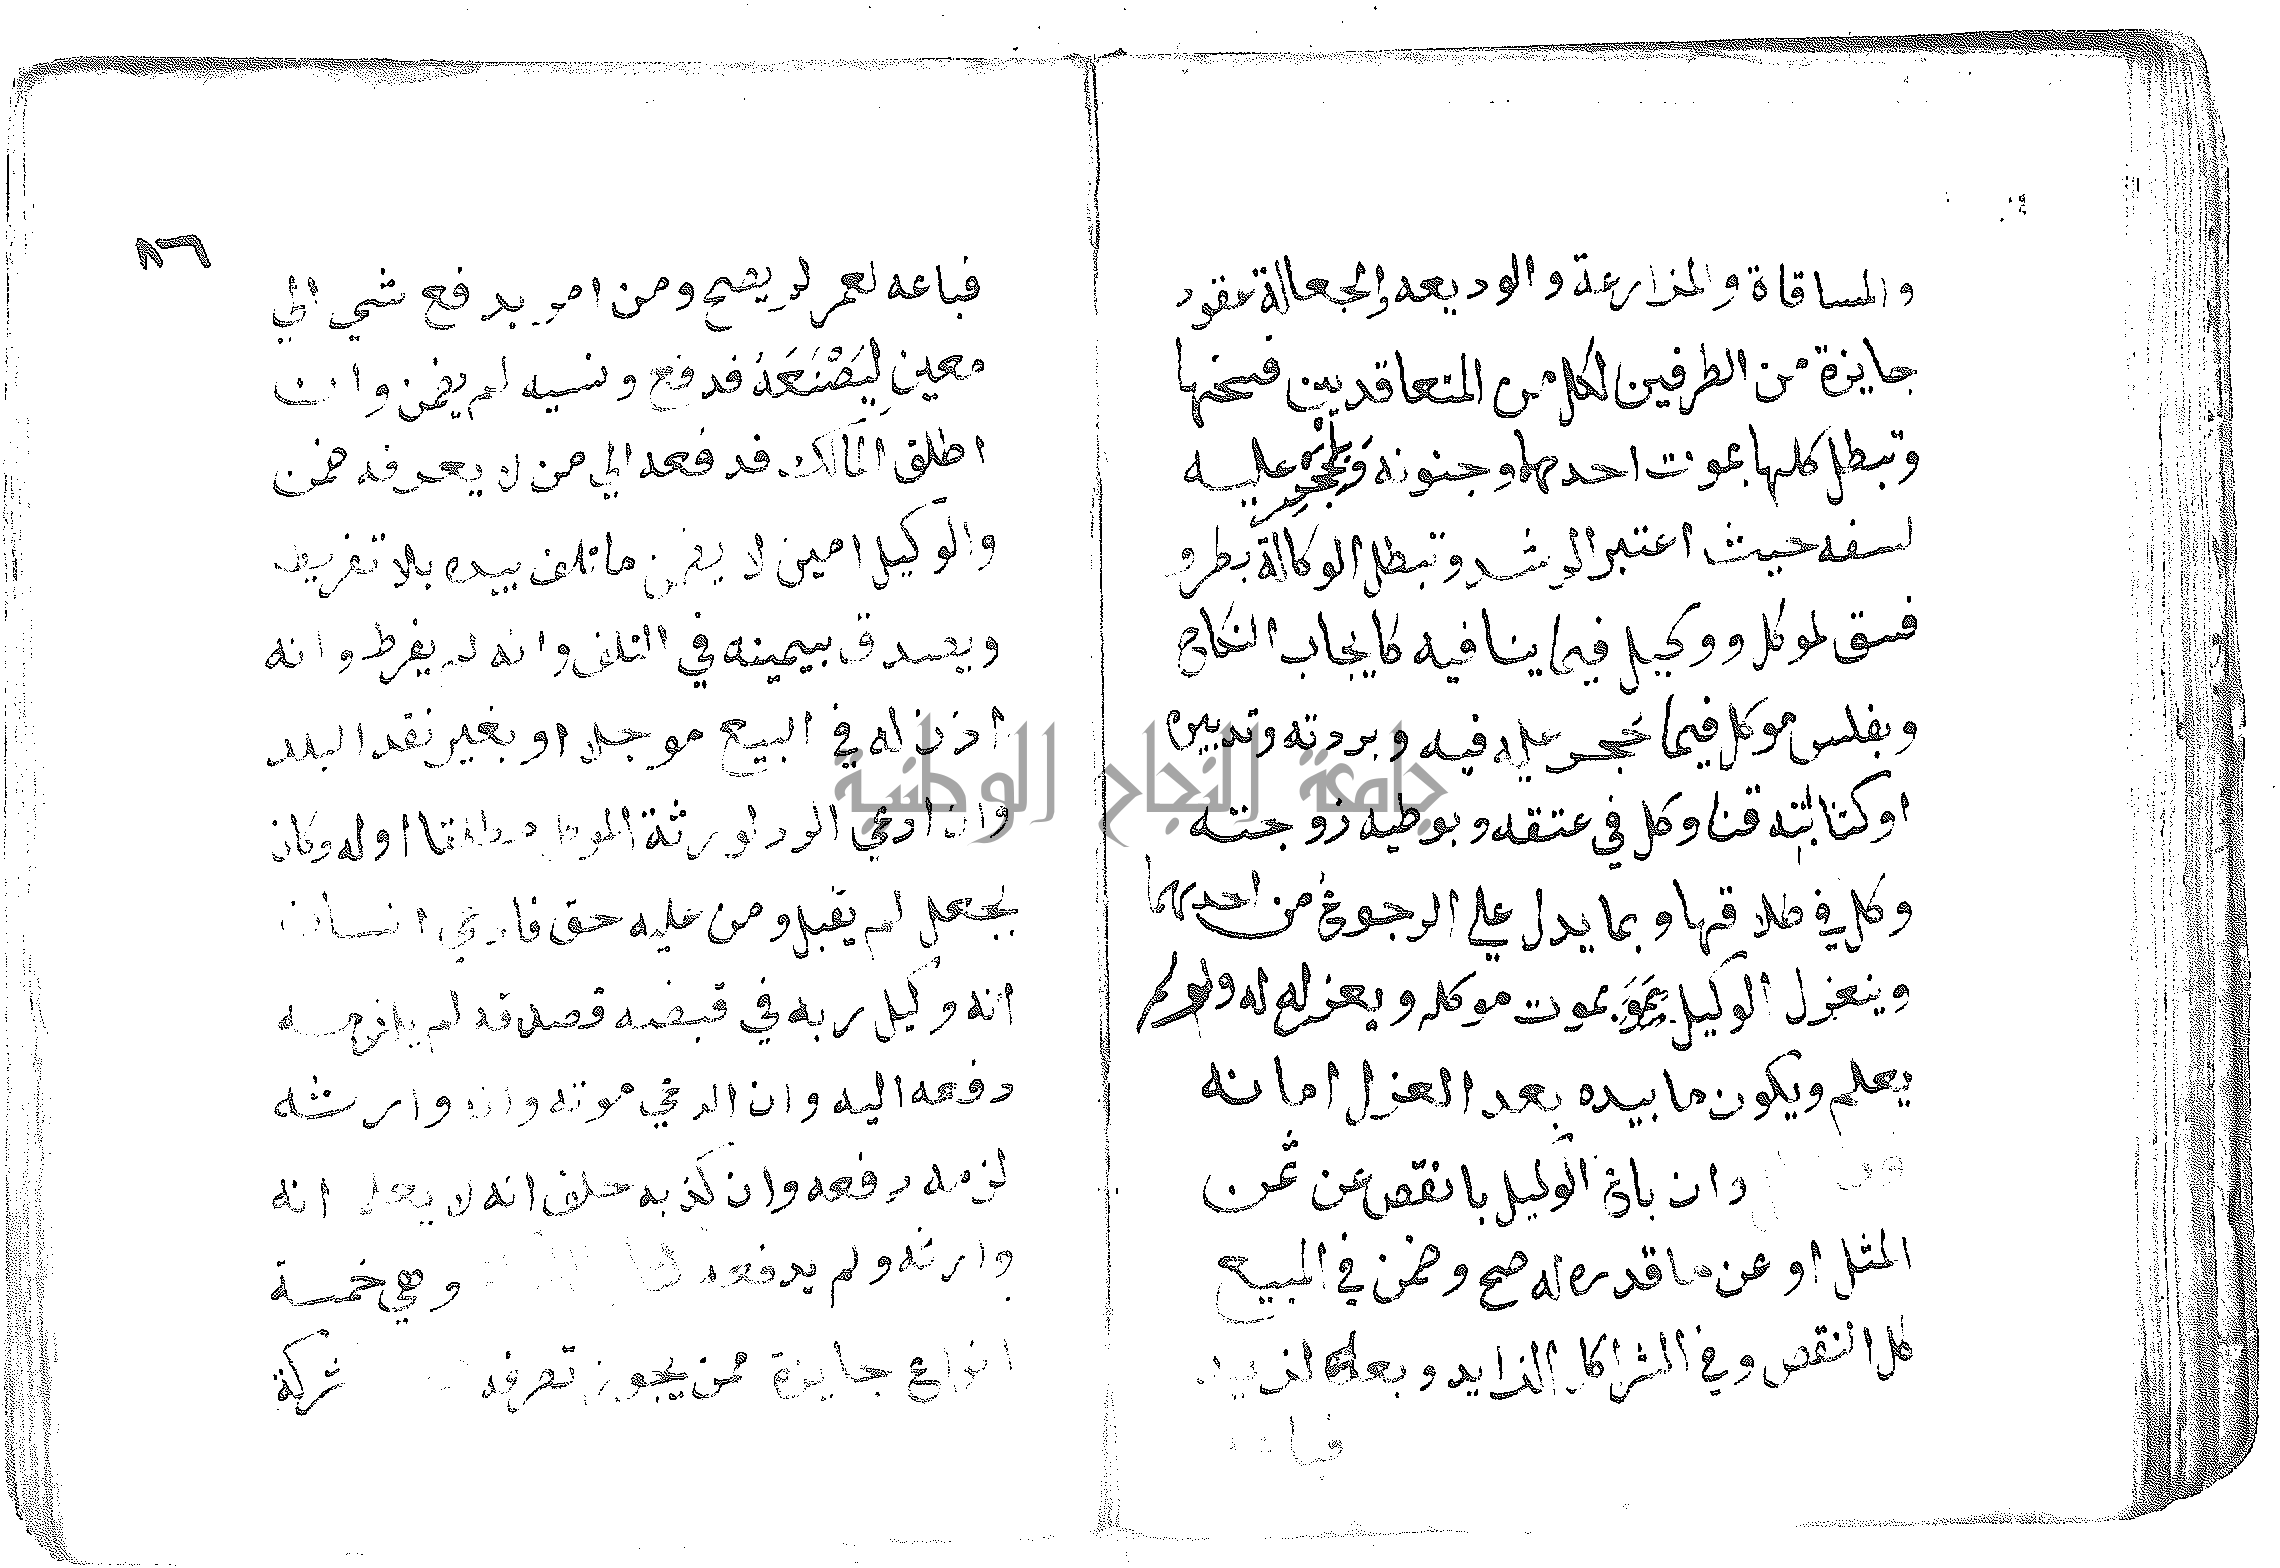 والمساقاة والمزارعة والوديعه والجعالة عقود
جايزة من الطرفين لكل من المتعاقدين فسخها
وتبطل كلها بموت احدهما وجنونه وبحجر عليه
لسفه حيث اعتبر الرشد وتبطل الوكالة بطرو
فسق لموكل ووكيل فيما ينافيه كايجاب النكاح
وبفلس موكل فيما حجر عليه فيه وبردته وتدبيره
او كتابته قنا وكل في عتقه وبوطيه زوجته
وكل في طلاقها وبما يدل علي الرجوع من احدهما
وينعزل الوكيل بموت موكله وبعزله له ولو لم
يعلم ويكون ما بيده بعد العزل امانه
وان باع الوكيل بانقص عن ثمن
المثل او عن ما قدره له صح وضمن في المبيع
كل النقص وفي الشرا كل الزايد وبعه لزيد
فباعه
٨٦
فباعه لعمر لم يصح ومن امر بدفع شي الي
معين ليصنعه فدفع ونسيه لم يضمن وان
اطلق المالك فدفعه الي من لا يعرفه ضمن
والوكيل امين لا يضمن ما تلف بيده بلا تفريط
ويصدق بيمينه في التلف وانه لم يفرط وانه
اذن له في البيع موجلا او بغير نقد البلد
وان ادعي الرد لورثة الموكل مطلقا او له وكان
بجعل لم يقبل ومن عليه حق فادعي انسان
انه وكيل ربه في قبضه فصدقه لم يلزمه
دفعه اليه وان ادعي موته وانه وارثه
لزمه دفعه وان كذبه حلف انه لا يعلم انه
وارثه ولم يدفعه وهي خمسة
انواع جايزة ممن يجوز تصرفه شركة
جامعة النجاح الوطنية